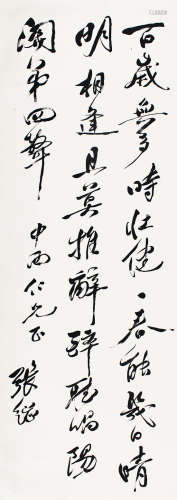 百歲無多時壯健一春能幾日晴
明相逢且莫推辭醉聽唱陽
關第四聲
中雨仁兄正
張繼